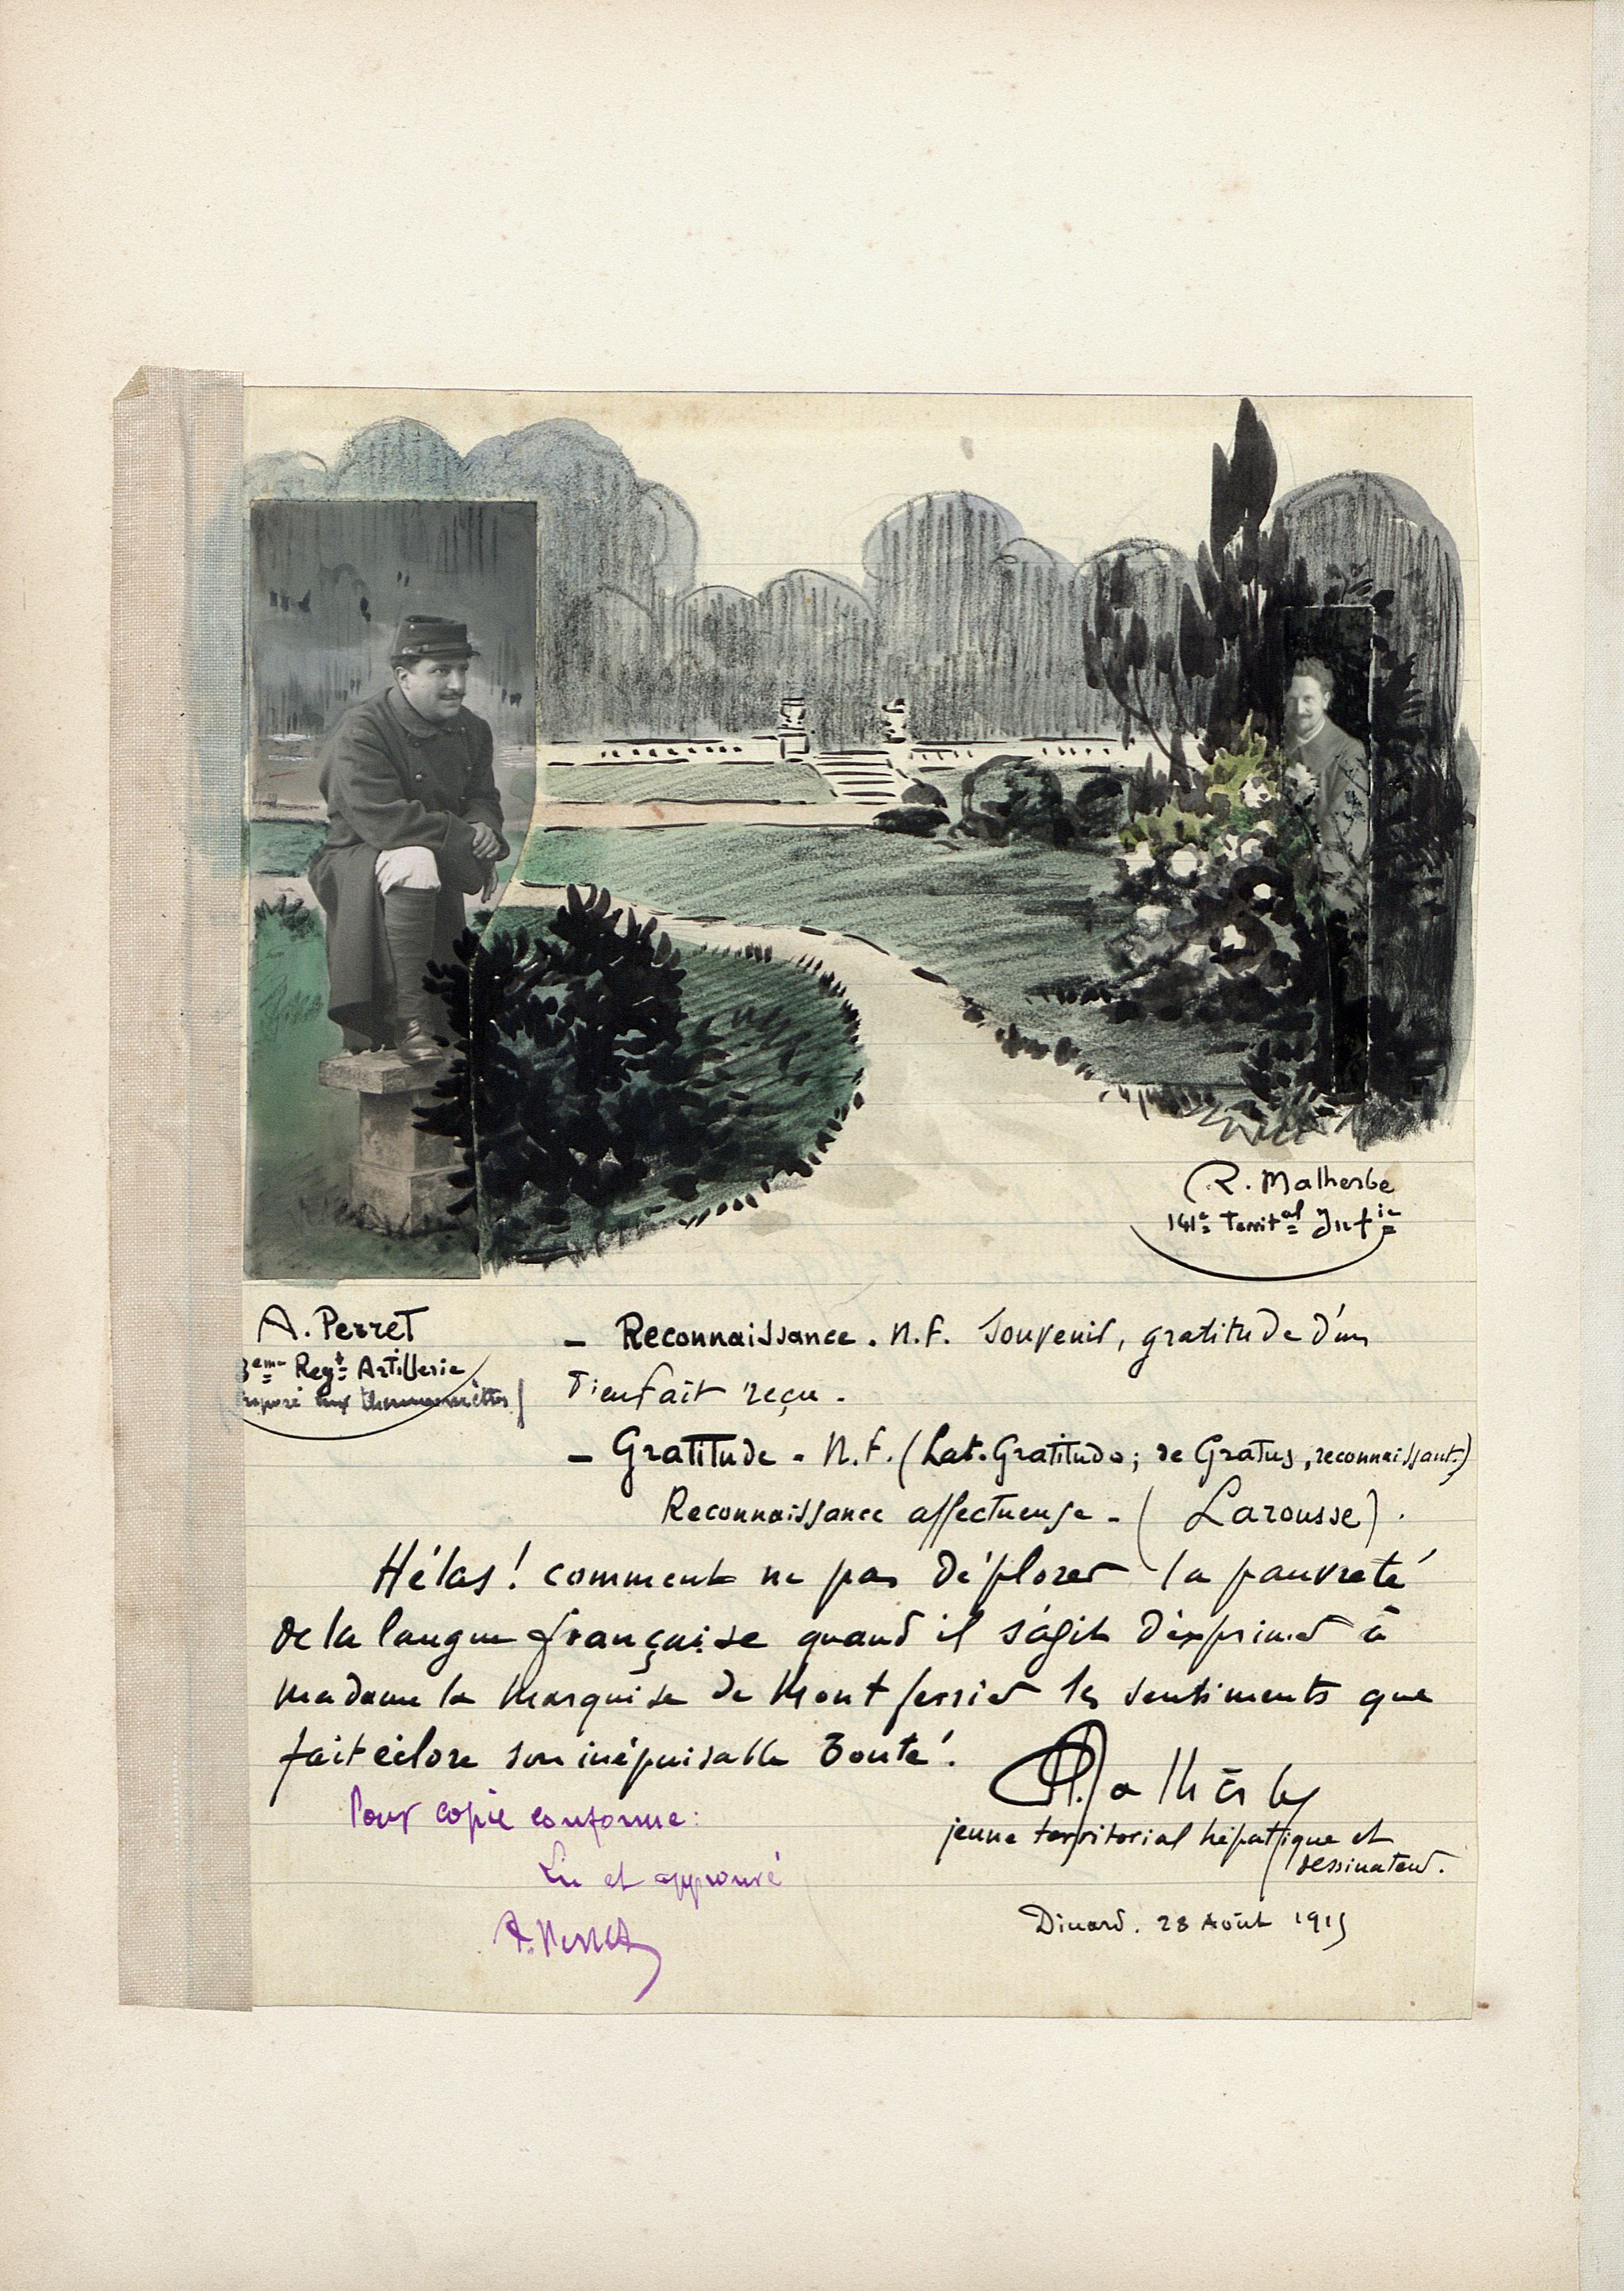 R. Malherbe
141e Territal Infie
A. Perret
3eme Regt Artillerie
aux thermomètres
- Reconnaissance. N.F. Souvenir, gratitude d'un
bienfait reçu.
- Gratitude. N.F. (Lat. Gratitudo; de Gratus, reconnaissant.)
Reconnaissance affectueuse - (Larousse).
Hélas! comment ne pas déplorer la pauvreté
de la langue française quand il s'agit d'exprimer à
Madame la Marquise de Montferrier les sentiments que
fait éclore son inépuisable bonté!
R. Malherbe
jeune territorial hépatique et
dessinateur.
Pour copie conforme:
Lu et approuvé
A. Perret
Dinard. 28 Août 1915